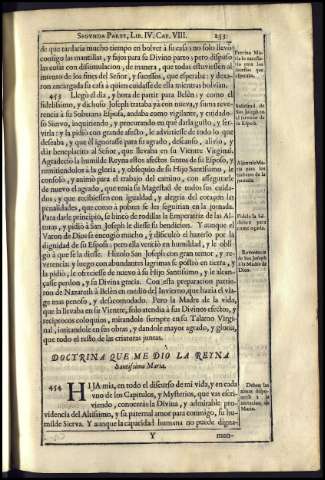 SEGUNDA PARTE, LIB. IV. CAP. VIII. 253
de que tardaria mucho tiempo en bolver à su casa: no solo llevò
consigo las mantillas, y fajos para su Divino parto; pero dispuso
las cosas con disimulacion, de manera, que todas estuviessen al
intento de los fines del Señor, y sucessos, que esperaba: y dexa-
ron encargada su casa à quien cuidasse de ella mientras bolvian.
453 Llegò el dia, y hora de partir para Belèn; y como el
fidelissimo, y dichoso Joseph trataba yà con nueva, y suma reve-
rencia à su Soberana Esposa, andaba como vigilante, y cuidado-
so Siervo, inquiriendo, y procurando en què darla gusto, y ser-
virla; y la pidiò con grande afecto, le advirtiesse de todo lo que
deseaba, y que èl ignorasse para su agrado, descanso, alivio, y
dàr beneplacito al Señor, que llevaba en su Vientre Virginal.
Agradeciò la humilde Reyna estos afectos santos de su Esposo, y
remitiendolos à la gloria, y obsequio de su Hijo Santissimo, le
consolò, y animò para el trabajo del camino, con assegurarle
de nuevo el agrado, que tenia su Magestad de todos sus cuida-
dos, y que recibiessen con igualdad, y alegria del corazon las
penalidades, que como pobres se les seguirian en la jornada.
Para darle principio, se hincò de rodillas la Emperatriz de las Al-
turas, y pidiò à San Joseph le diesse su bendicion. Y aunque el
Varon de Dios se encogiò mucho, y dificultò el hacerlo por la
dignidad de su Esposa; pero ella venciò en humildad, y le obli-
gò à que se la diesse. Hizolo San Joseph con gran temor, y re-
verencia; y luego con abundantes lagrimas se postrò en tierra, y
la pidiò, le ofreciesse de nuevo à su Hijo Santissimo, y le alcan-
çasse perdon, y su Divina gracia. Con esta preparacion partie-
ron de Nazareth à Belèn en medio del Invierno, que hacia el via-
ge mas penoso, y desacomodado. Pero la Madre de la vida,
que la llevaba en su Vientre, solo atendia à sus Divinos efectos, y
reciprocos coloquios, mirandole siempre en su Talamo Virgi-
nal, imitandole en sus obras, y dandole mayor agrado, y gloria,
que todo el resto de las criaturas juntas.
DOCTRINA QUE ME DIO LA REYNA
Santissima Maria.
454 HIJA mia, en todo el discurso de mi vida, y en cada
uno de los Capitulos, y Mysterios, que vas escri-
viendo, conoceràs la Divina, y admirable pro-
videncia del Altissimo, y su paternal amor para conmigo, su hu-
milde Sierva. Y aunque la capacidad humana no puede digna-
Y
men-